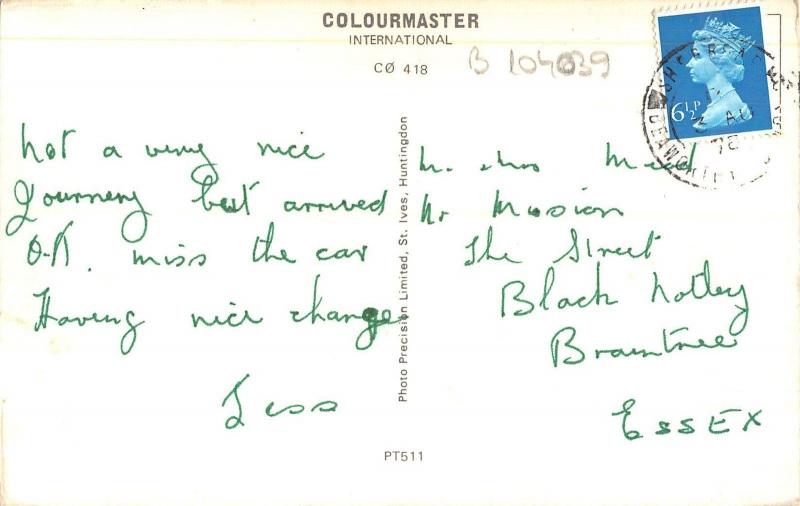 COLOURMASTER
INTERNATIONAL
CØ 418
B 104039
6½P
3 AU
78
Not a very nice
Journery but arrived
O.K. miss the car
Having nice change
Jess
Photo Precision Limited, St. Ives, Huntingdon
Mr. Mrs Mead
Nr Mission
The Street
Black Notley
Braintree
ESSEX
PT511